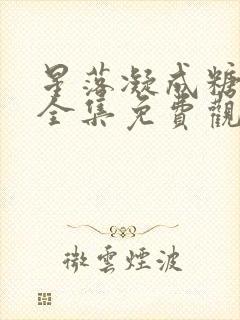 星落凝成糖
全集免費觀
微雲煙波